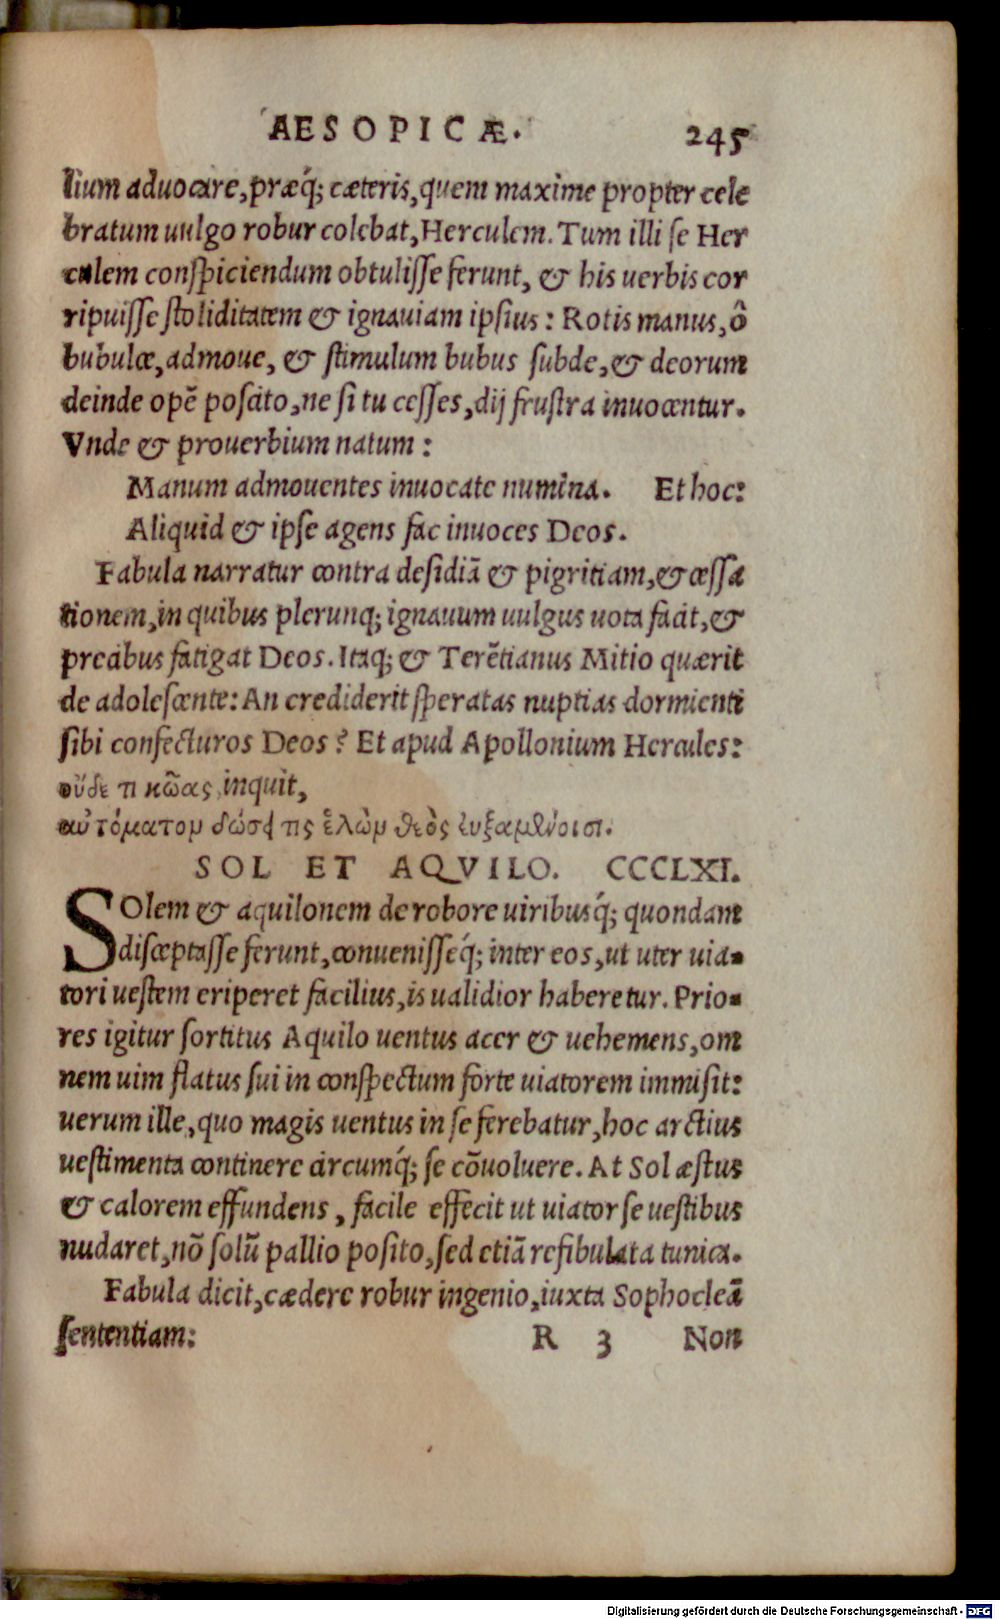 AESOPICÆ. 245
lium aduocare, præq́; cæteris, quem maxime propter cele
bratum uulgo robur colebat, Herculem. Tum illi se Her
culem conspiciendum obtulisse ferunt, & his uerbis cor
ripuisse stoliditatem & ignauiam ipsius: Rotis manus, ô
bubulce, admoue, & stimulum bubus subde, & deorum
deinde opē poscito, ne si tu cesses, dij frustra inuocentur.
Vnde & prouerbium natum:
Manum admouentes inuocate numina. Et hoc:
Aliquid & ipse agens fac inuoces Deos.
Fabula narratur contra desidiā & pigritiam, & cessa
tionem, in quibus plerunq; ignauum uulgus uota facit, &
precibus fatigat Deos. Itaq; & Terētianus Mitio quærit
de adolescente: An crediderit speratas nuptias dormienti
sibi confecturos Deos? Et apud Apollonium Hercules:
οὔδε τι κῶας, inquit,
αὐτόματον δώσει τις ἑλὼν θεὸς εὐξαμένοισι.
SOL ET AQVILO. CCCLXI.
SOlem & aquilonem de robore uiribusq́; quondam
disceptasse ferunt, conuenisseq́; inter eos, ut uter uia-
tori uestem eriperet facilius, is ualidior haberetur. Prio-
res igitur sortitus Aquilo uentus acer & uehemens, om
nem uim flatus sui in conspectum forte uiatorem immisit:
uerum ille, quo magis uentus in se ferebatur, hoc arctius
uestimenta continere circumq́; se cōuoluere. At Sol æstus
& calorem effundens, facile effecit ut uiator se uestibus
nudaret, nō solū pallio posito, sed etiā refibulata tunica.
Fabula dicit, cædere robur ingenio, iuxta Sophocleā
sententiam: R 3 Non
Digitalisierung gefördert durch die Deutsche Forschungsgemeinschaft - DFG